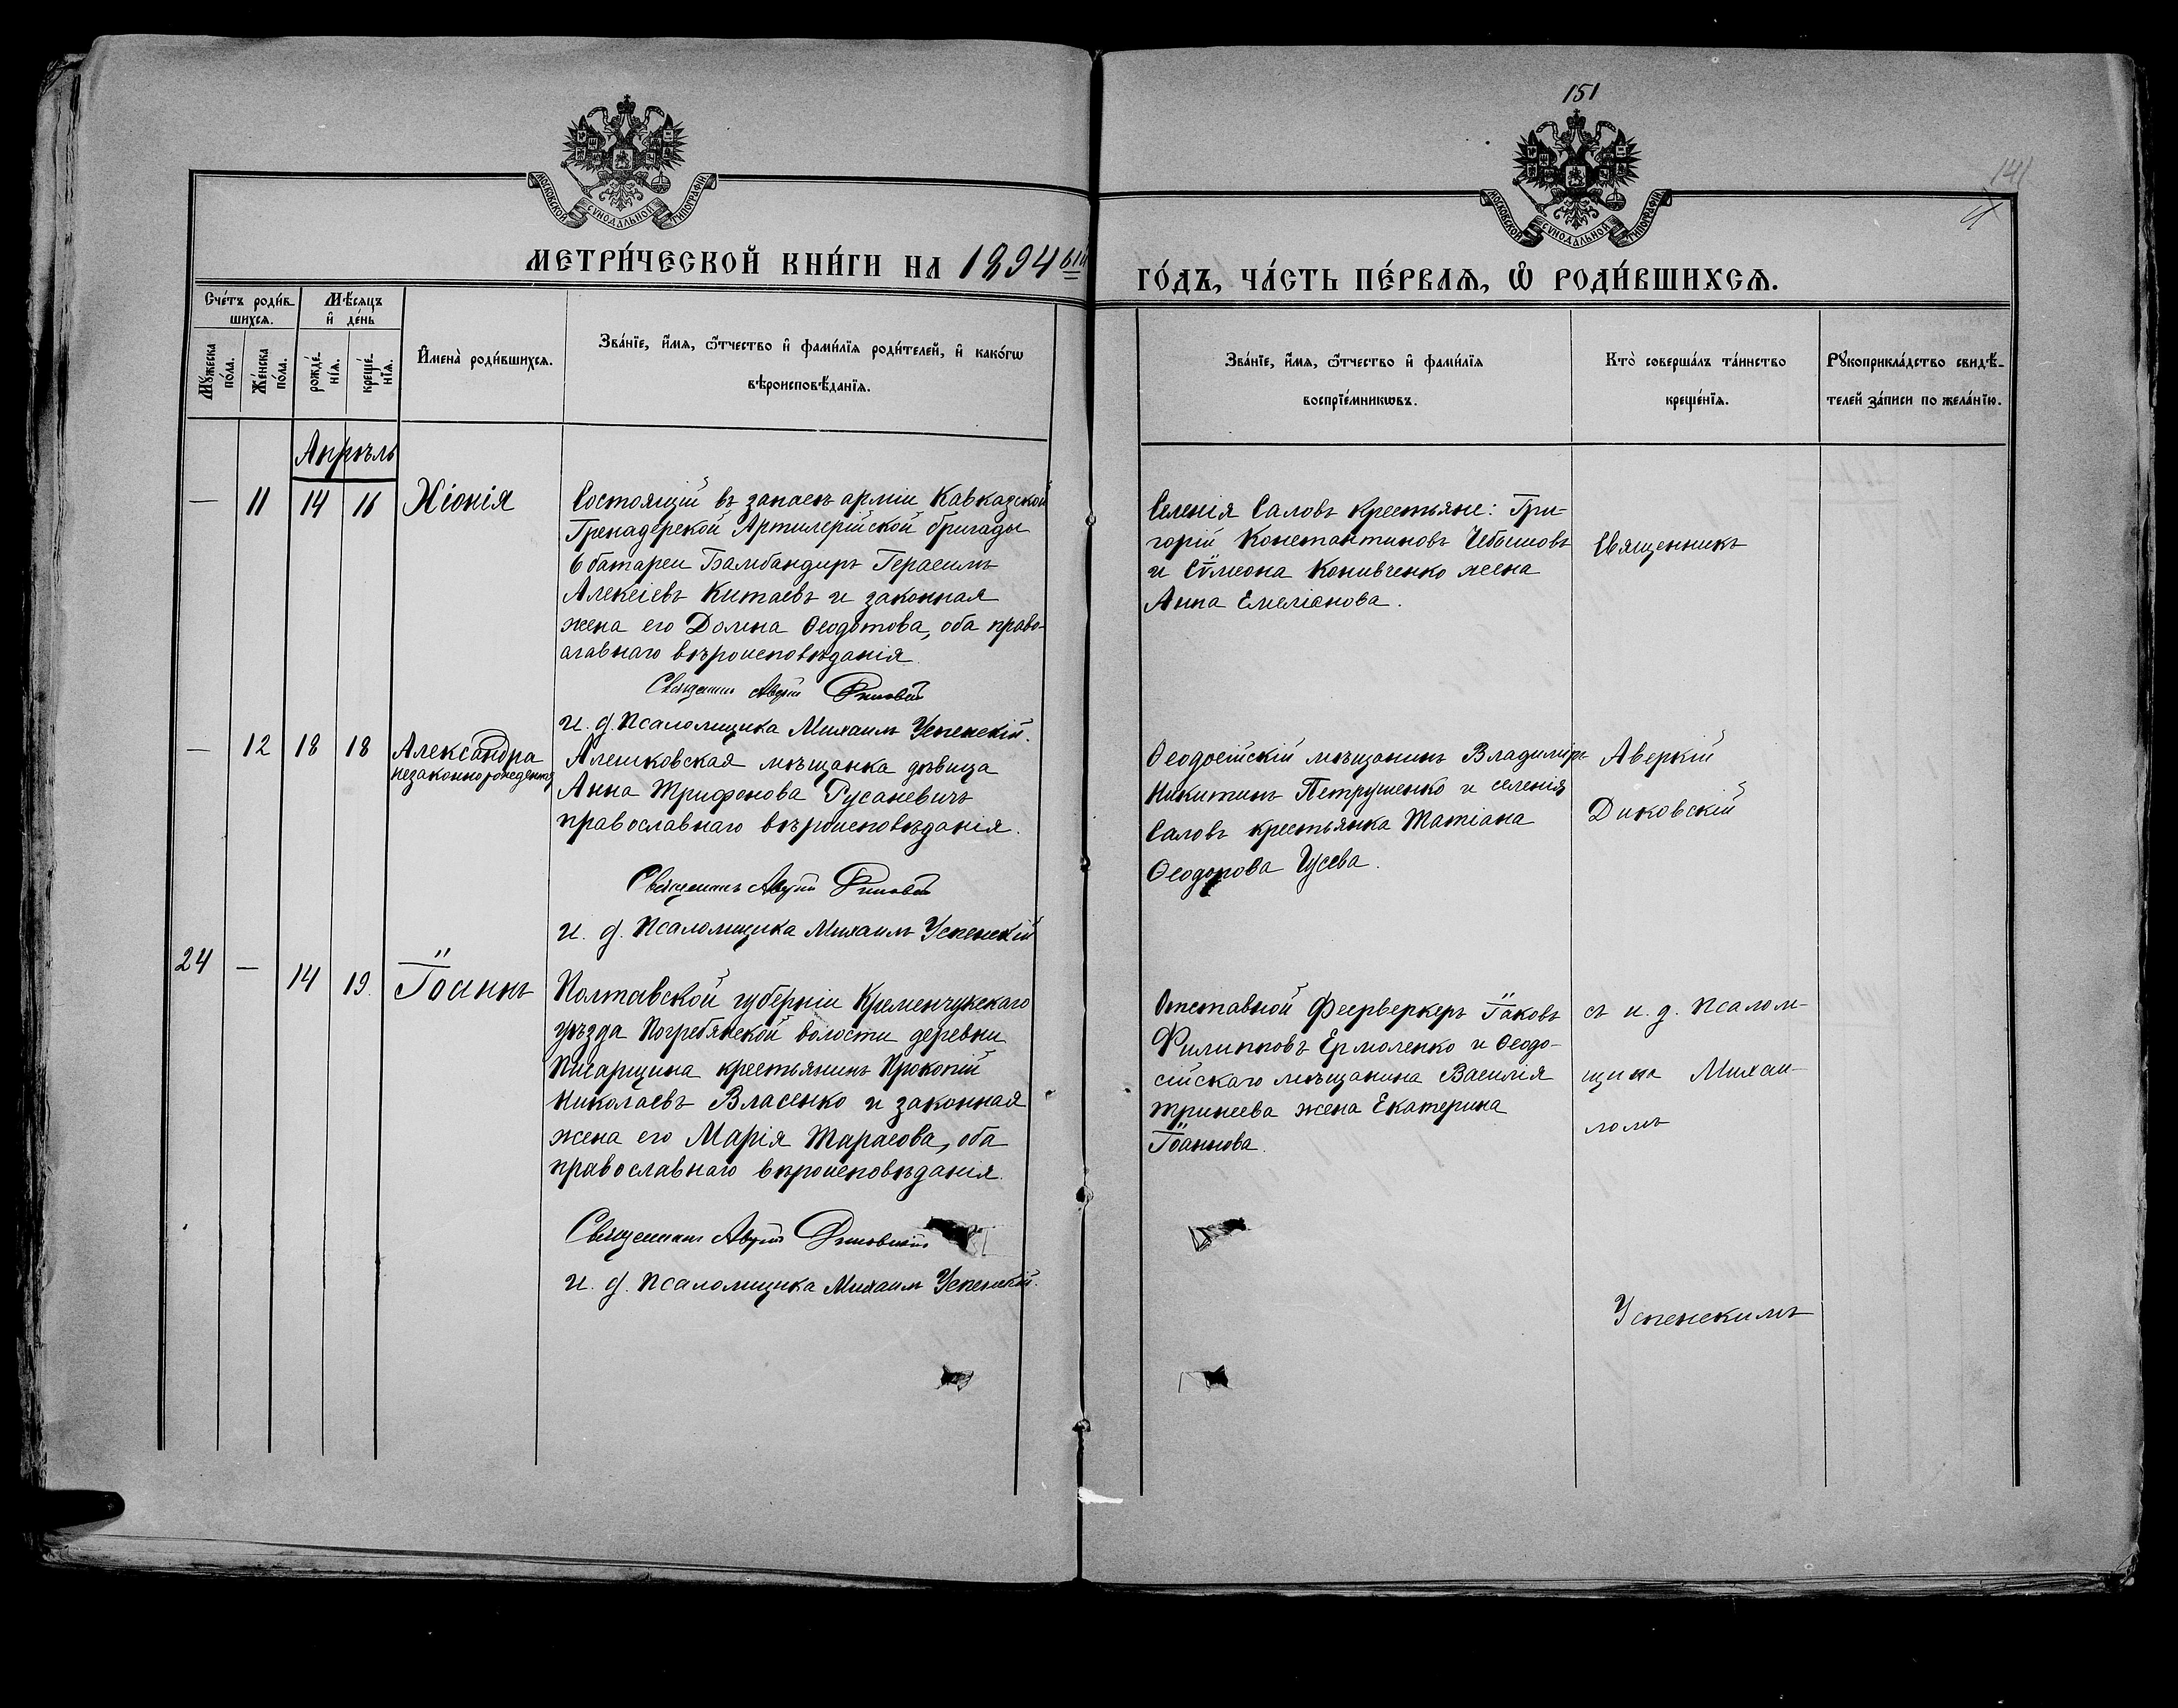 151
141
МОСКОВСКОЙ СѴНОДАЛЬНОЙ ТИПОГРАФІИ
МОСКОВСКОЙ СѴНОДАЛЬНОЙ ТИПОГРАФІИ
МЕТРИ́ЧЕСКОЙ КНИ́ГИ НА 1894 ый
ГО́ДЪ, ЧА́СТЬ ПЕ́РВАѦ, Ѡ҆ РОДИ́ВШИХСѦ.
Сче́тъ роди́в-
шихсѧ.
Мꙋ́жеска по́ла.
Же́нска по́ла.
Мѣ́сяцъ
и҆ де́нь
рожде́-
нїѧ.
креще́-
нїѧ.
И҆мена̀ роди́вшихсѧ.
Зва́нїе, и҆́мѧ, ѻ҆́тчество и҆ фами́лїѧ роди́телей, и҆ како́гѡ
вѣроисповѣ́данїѧ.
Зва́нїе, и҆́мѧ, ѻ҆́тчество и҆ фами́лїѧ
воспрїе́мникѡвъ.
Кто̀ соверша́лъ та́инство
креще́нїѧ.
Рꙋкоприкла́дство свидѣ́-
телей за́писи по жела́нїю.
Апрѣль
— 11 14 16 Хіонія
Состоящій въ запасѣ арміи Кавказской
Гренадерской Артилерійской бригады
6 батареи Бамбандиръ Герасимъ
Алексіевъ Китаевъ и законная
жена его Домна Ѳеодотова, оба право-
славнаго вѣроисповѣданія.
Священникъ Аверкій Диковскій
и. д. Псаломщика Михаилъ Успенскій.
Селенія Саловъ крестьяне: Гри-
горій Константиновъ Чебышовъ
и Сѵмеона Конивченко жена
Анна Емеліанова.
Священникъ
— 12 18 18 Александра
незаконнорожденная
Алешковская мѣщанка дѣвица
Анна Трифонова Русаневичъ
православнаго вѣроисповѣданія.
Священникъ Аверкій Диковскій
и. д. Псаломщика Михаилъ Успенскій
Ѳеодосійскій мѣщанинъ Владиміръ
Никитинъ Петрушенко и селенія
Саловъ крестьянка Татіана
Ѳеодорова Гусева.
Аверкій
Диковскій
24 — 14 19. Іоаннъ
Полтавской губерніи Кременчугскаго
уѣзда Погребянской волости деревни
Писарщина крестьянинъ Прокопій
Николаевъ Власенко и законная
жена его Марія Тарасова, оба
православнаго вѣроисповѣданія.
Священникъ Аверкій Диковскій
и. д. Псаломщика Михаилъ Успенскій.
Отставной Феерверкеръ Іаковъ
Филипповъ Ермоленко и Ѳеодо-
сійскаго мѣщанина Василія
жена Екатерина
Іоаннова.
съ и. д. Псалом-
щика Михаи-
ломъ
Успенскимъ